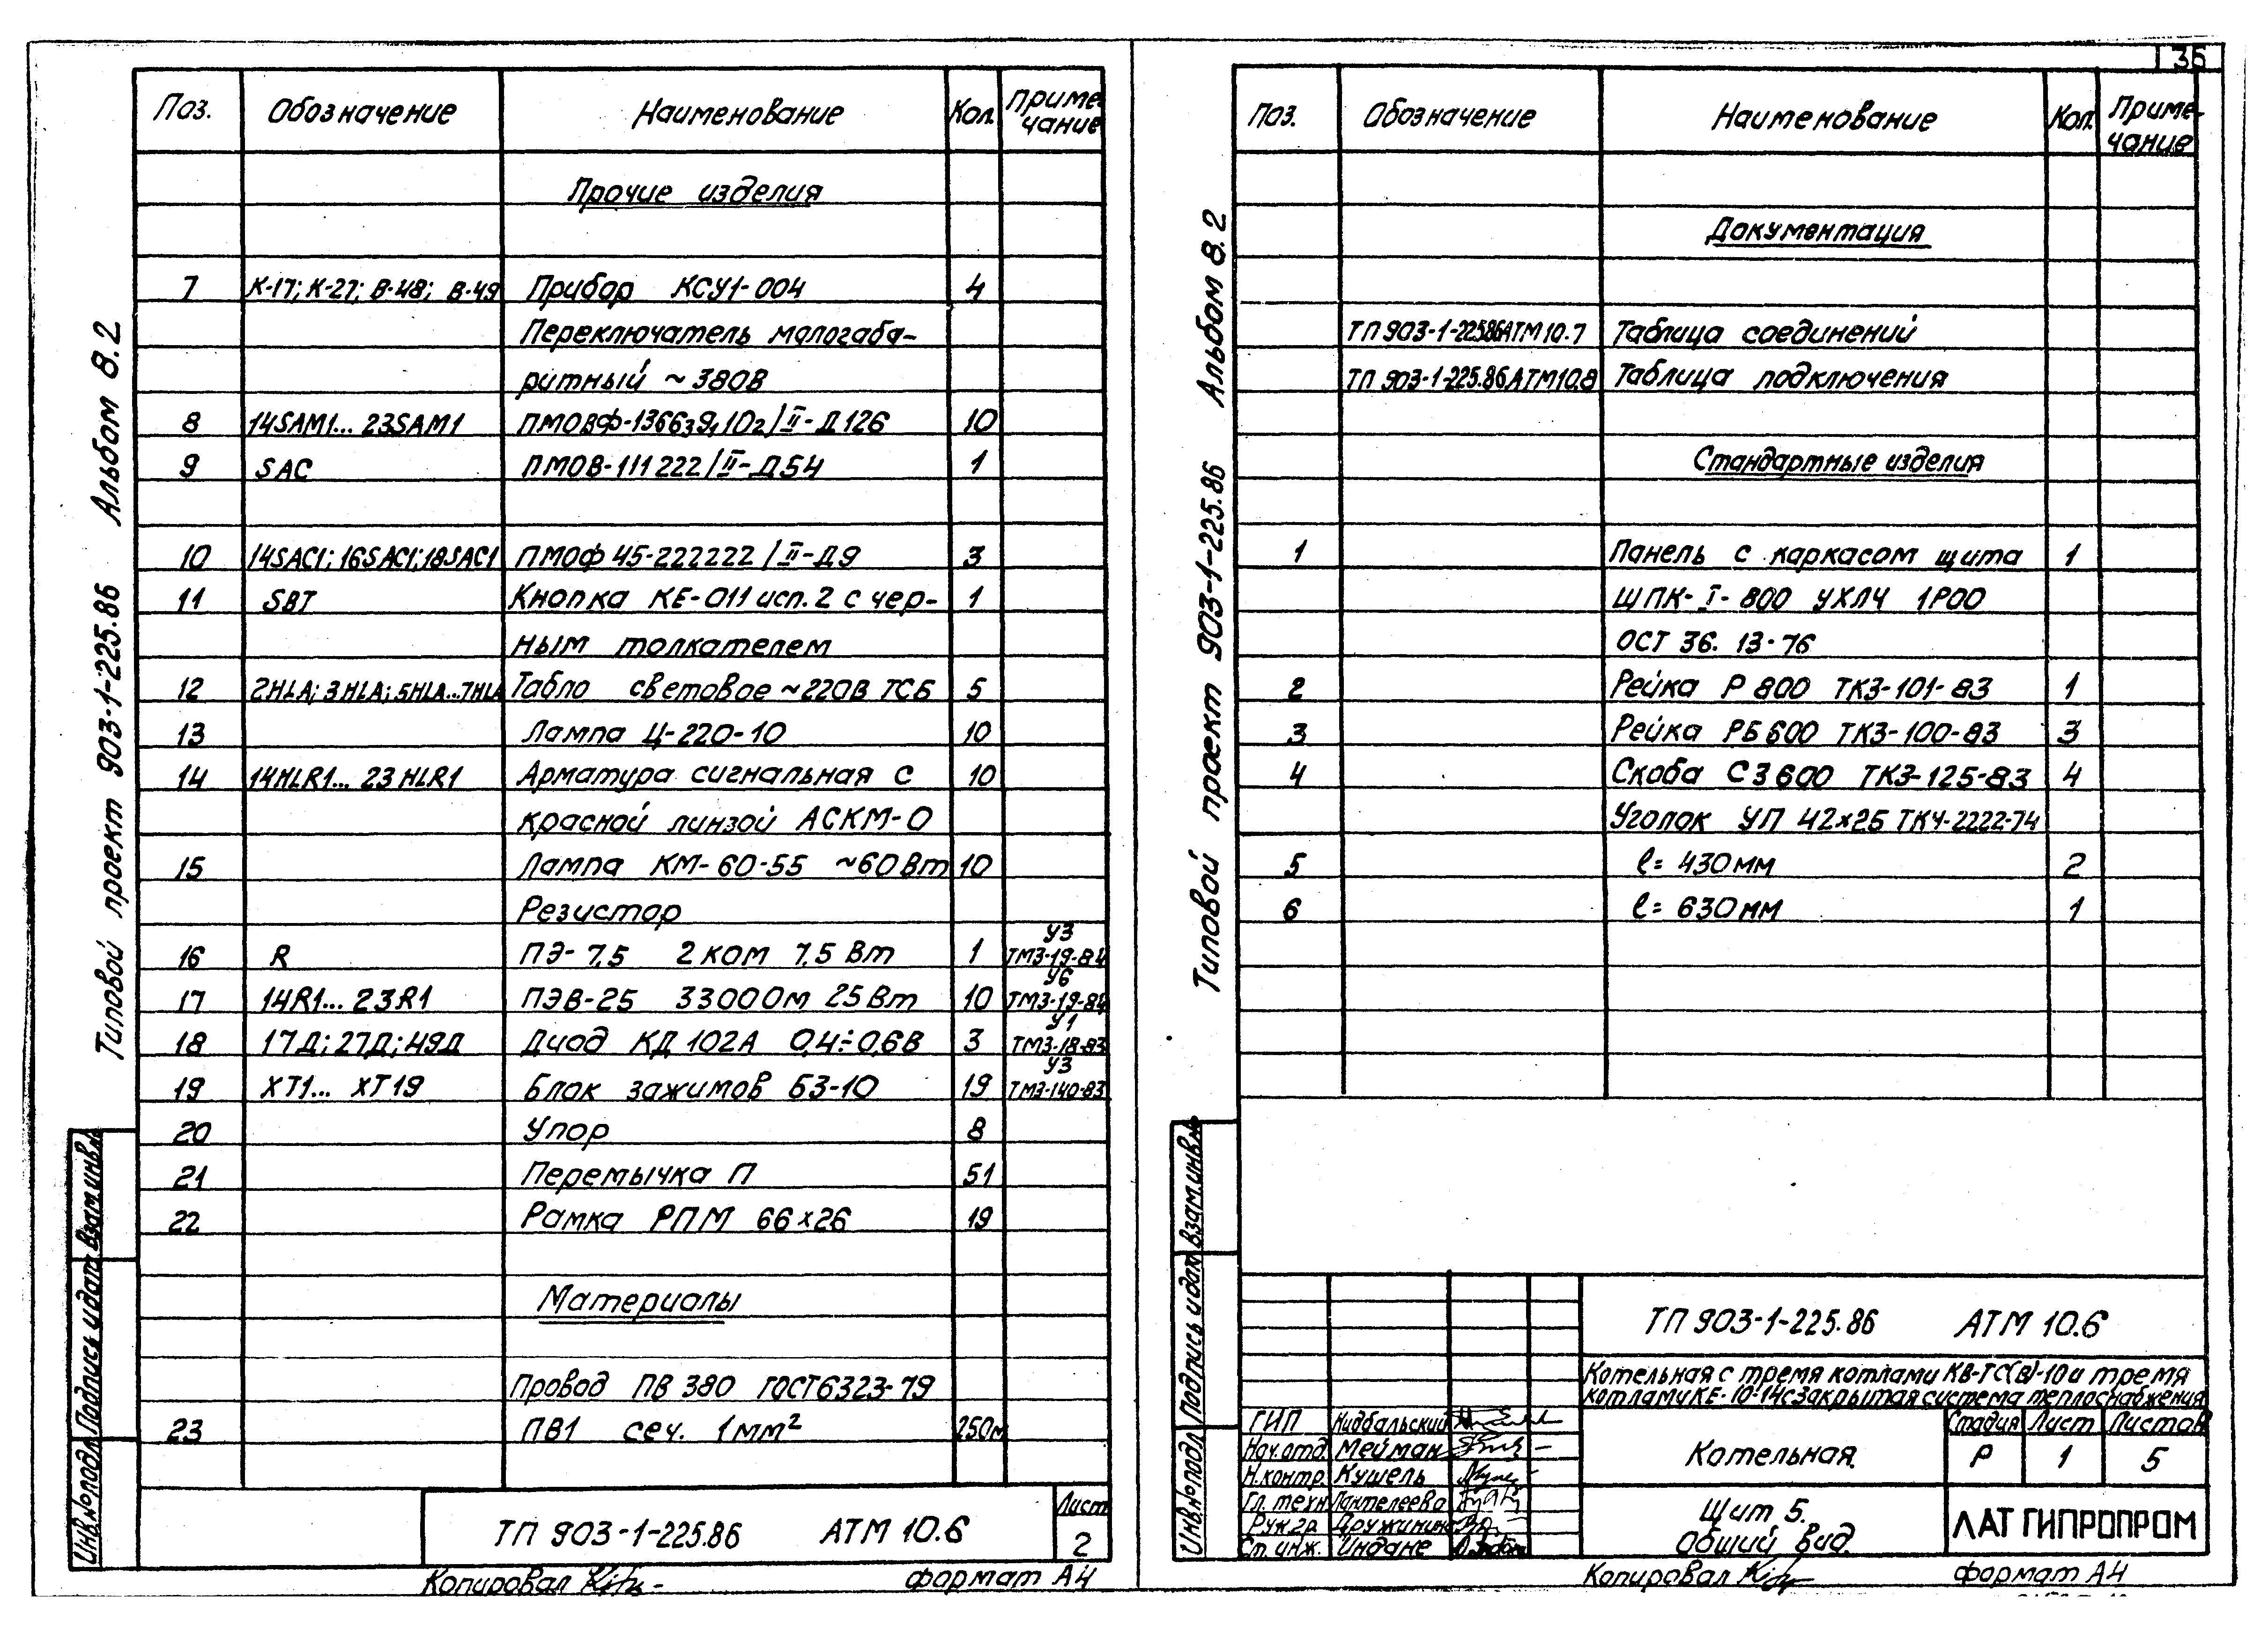 136
Типовой проект 903-1-225.86 Альбом 8.2
Поз. Обозначение Наименование Кол. Приме-
чание
Прочие изделия
7 К-17; К-27; В-48; В-49 Прибор КСУ1-004 4
Переключатель малогаба-
ритный ~380В
8 14SAM1... 23SAM1 ПМОВФ-136639,102/II-Д126 10
9 SAC ПМОВ-111222/II-Д54 1
10 14SAC1; 16SAC1; 18SAC1 ПМОФ45-222222/II-Д9 3
11 SBT Кнопка КЕ-011 исп. 2 с чер- 1
ным толкателем
12 2HLA; 3HLA; 5HLA...7HLA Табло световое ~220В ТСБ 5
13 Лампа Ц-220-10 10
14 14HLR1... 23HLR1 Арматура сигнальная с 10
красной линзой АСКМ-О
15 Лампа КМ-60-55 ~60Вт 10
Резистор
16 R ПЭ-7,5 2ком 7,5 Вт 1 У3 ТМ3-19-84
17 14R1... 23R1 ПЭВ-25 3300Ом 25Вт 10 У6 ТМ3-19-84
18 17Д; 27Д; 49Д Диод КД102А 0,4÷0,6В 3 У1 ТМ3-18-83
19 ХТ1... ХТ19 Блок зажимов Б3-10 19 У3 ТМ3-140-83
20 Упор 8
21 Перемычка П 51
22 Рамка РПМ 66×26 19
Материалы
Провод ПВ 380 ГОСТ6323-79
23 ПВ1 сеч. 1мм² 250м
Взам.инв.№
Подпись и дата
Инв.№ подл.
ТП 903-1-225.86 АТМ 10.6
Лист
2
Копировал
формат А4
Типовой проект 903-1-225.86 Альбом 8.2
Поз. Обозначение Наименование Кол. Приме-
чание
Документация
ТП 903-1-225.86 АТМ10.7 Таблица соединений
ТП 903-1-225.86 АТМ10.8 Таблица подключения
Стандартные изделия
1 Панель с каркасом щита 1
ЩПК-I-800 УХЛ4 1Р00
ОСТ 36.13-76
2 Рейка Р800 ТК3-101-83 1
3 Рейка РБ600 ТК3-100-83 3
4 Скоба С3600 ТК3-125-83 4
Уголок УП 42×25 ТК4-2222-74
5 ℓ= 430мм 2
6 ℓ= 630мм 1
Взам.инв.№
Подпись и дата
Инв.№ подл.
ТП 903-1-225.86 АТМ 10.6
Котельная с тремя котлами КВ-ТС(В)-10 и тремя
котлами КЕ-10-14с Закрытая система теплоснабжения
ГИП Нидбальский
Нач.отд. Мейман
Н.контр. Кушель
Гл. техн. Пантелеева
Рук.гр. Дружинина
Ст. инж. Индане
Котельная.
Стадия Лист Листов
Р 1 5
Щит 5.
Общий вид.
ЛАТГИПРОПРОМ
Копировал
формат А4